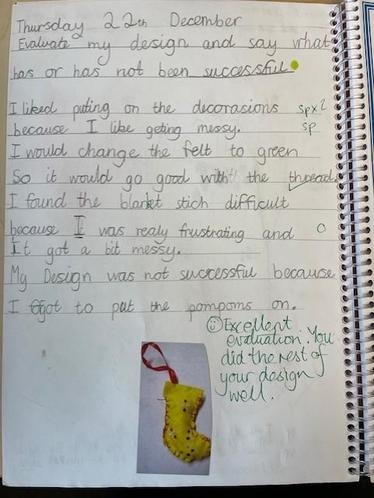 Thursday 22th December
Evaluate my design and say what
has or has not been successful
I liked puting on the decorasions spx2
because I like geting messy. sp
I would change the felt to green
So it would go good with the thread.
I found the blanket stich difficult
because I was realy frustrating and
It got a bit messy.
My Design was not successful because
I fogot to put the pompoms on.
Excellent
evaluation. You
did the rest of
your design
well.